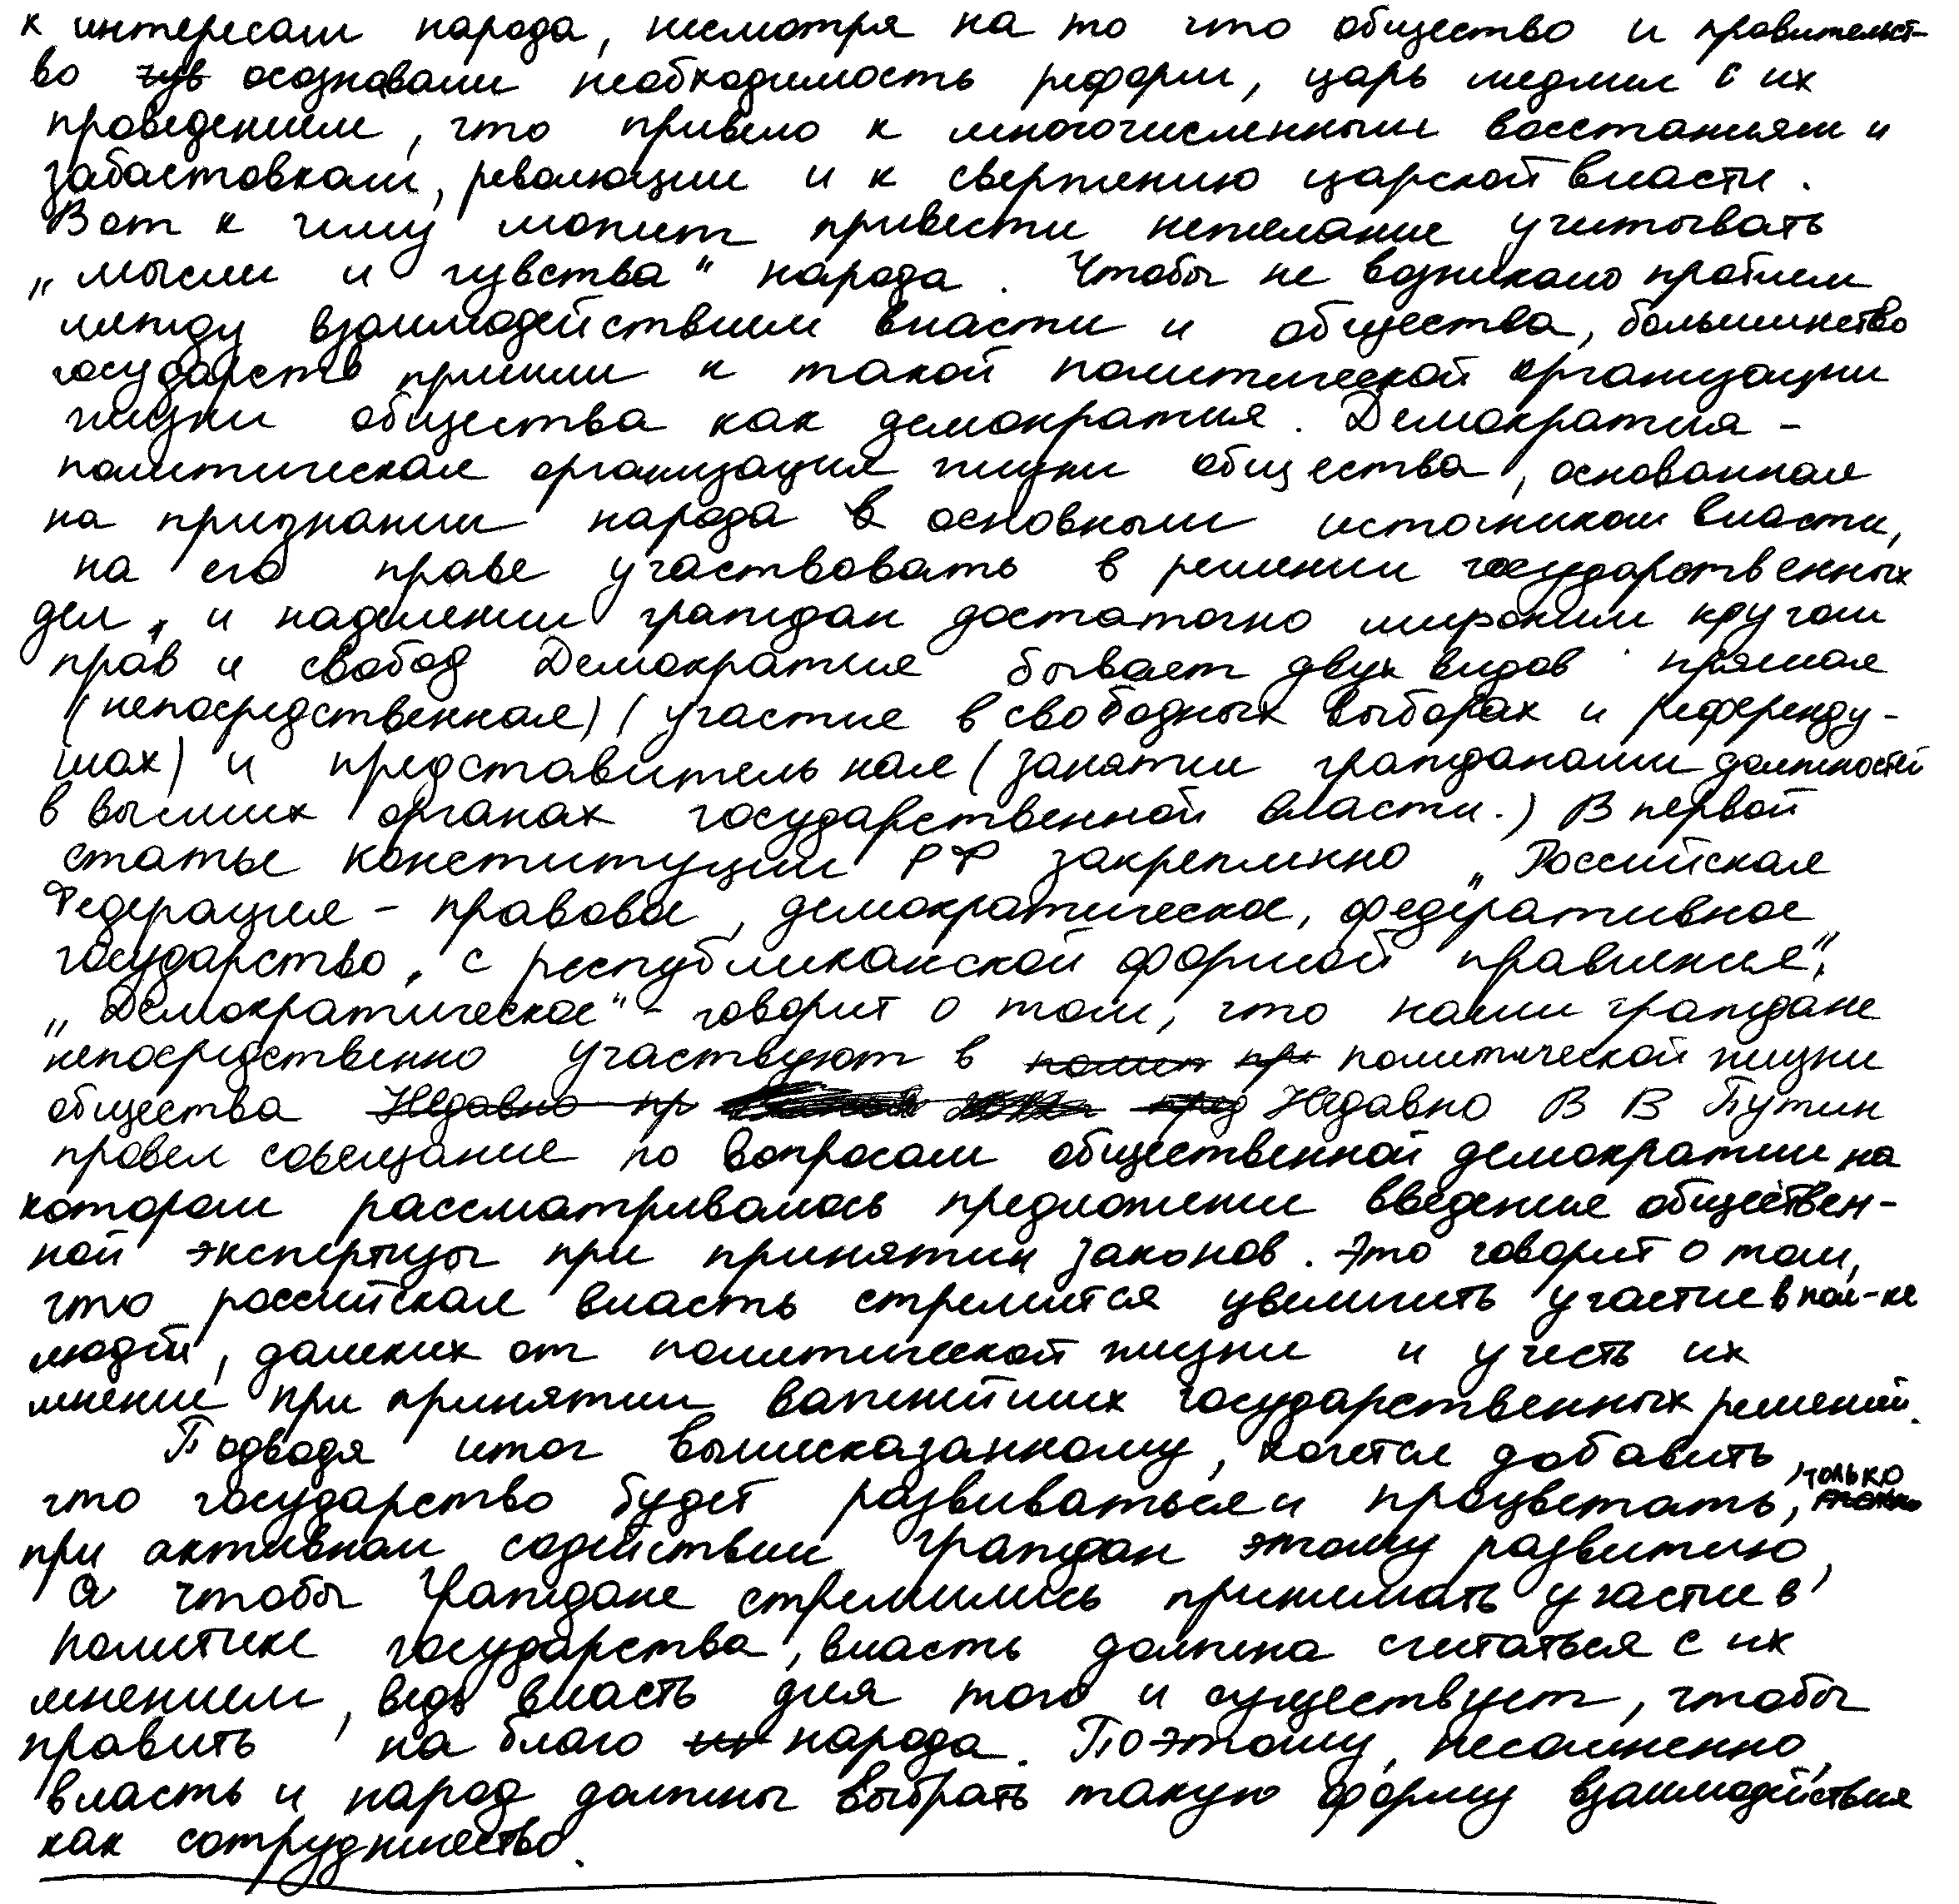 к интересам народа, несмотря на то что общество и правительст-
во чув осознавали необходимость реформ, царь медлил с их
проведением, что привело к многочисленным восстаниям и
забастовкам, революции и к свержению царской власти.
Вот к чему может привести нежелание учитывать
„мысли и чувства“ народа. Чтобы не возникало проблем
между взаимодействием власти и общества, большинство
государств пришли к такой политической организации
жизни общества как демократия. Демократия -
политическая организация жизни общества, основанная
на признании народа в основным источником власти,
на его праве участвовать в решении государственных
дел, и наделении граждан достаточно широким кругом
прав и свобод Демократия бывает двух видов прямая
(непосредственная) (участие в свободных выборах и референду-
мах) и представительная (занятии гражданами должностей
в высших органах государственной власти.) В первой
статье конституции РФ закреплено „Российская
Федерация - правовое, демократическое, федеративное
государство, с республиканской формой правления“.
„Демократическое“ - говорит о том, что наши граждане
непосредственно участвуют в полит пр политической жизни
общества Недавно пр пред Недавно В В Путин
провел совещание по вопросам общественной демократии на
котором рассматривалось предложении введения обществен-
ной экспертизы при принятии законов. Это говорит о том,
что российская власть стремится увеличить участие в пол-ке
людей, далеких от политической жизни и учесть их
мнение при принятии важнейших государственных решений.
Подводя итог вышесказанному, хочется добавить,
что государство будет развиваться и процветать, только
при активном содействии граждан этому развитию,
а чтобы граждане стремились принимать участие в
политике государства, власть должна считаться с их
мнением, ведь власть для того и существует, чтобы
править на благо их народа. Поэтому, несомненно,
власть и народ должны выбрать такую форму взаимодействия
как сотрудничество.